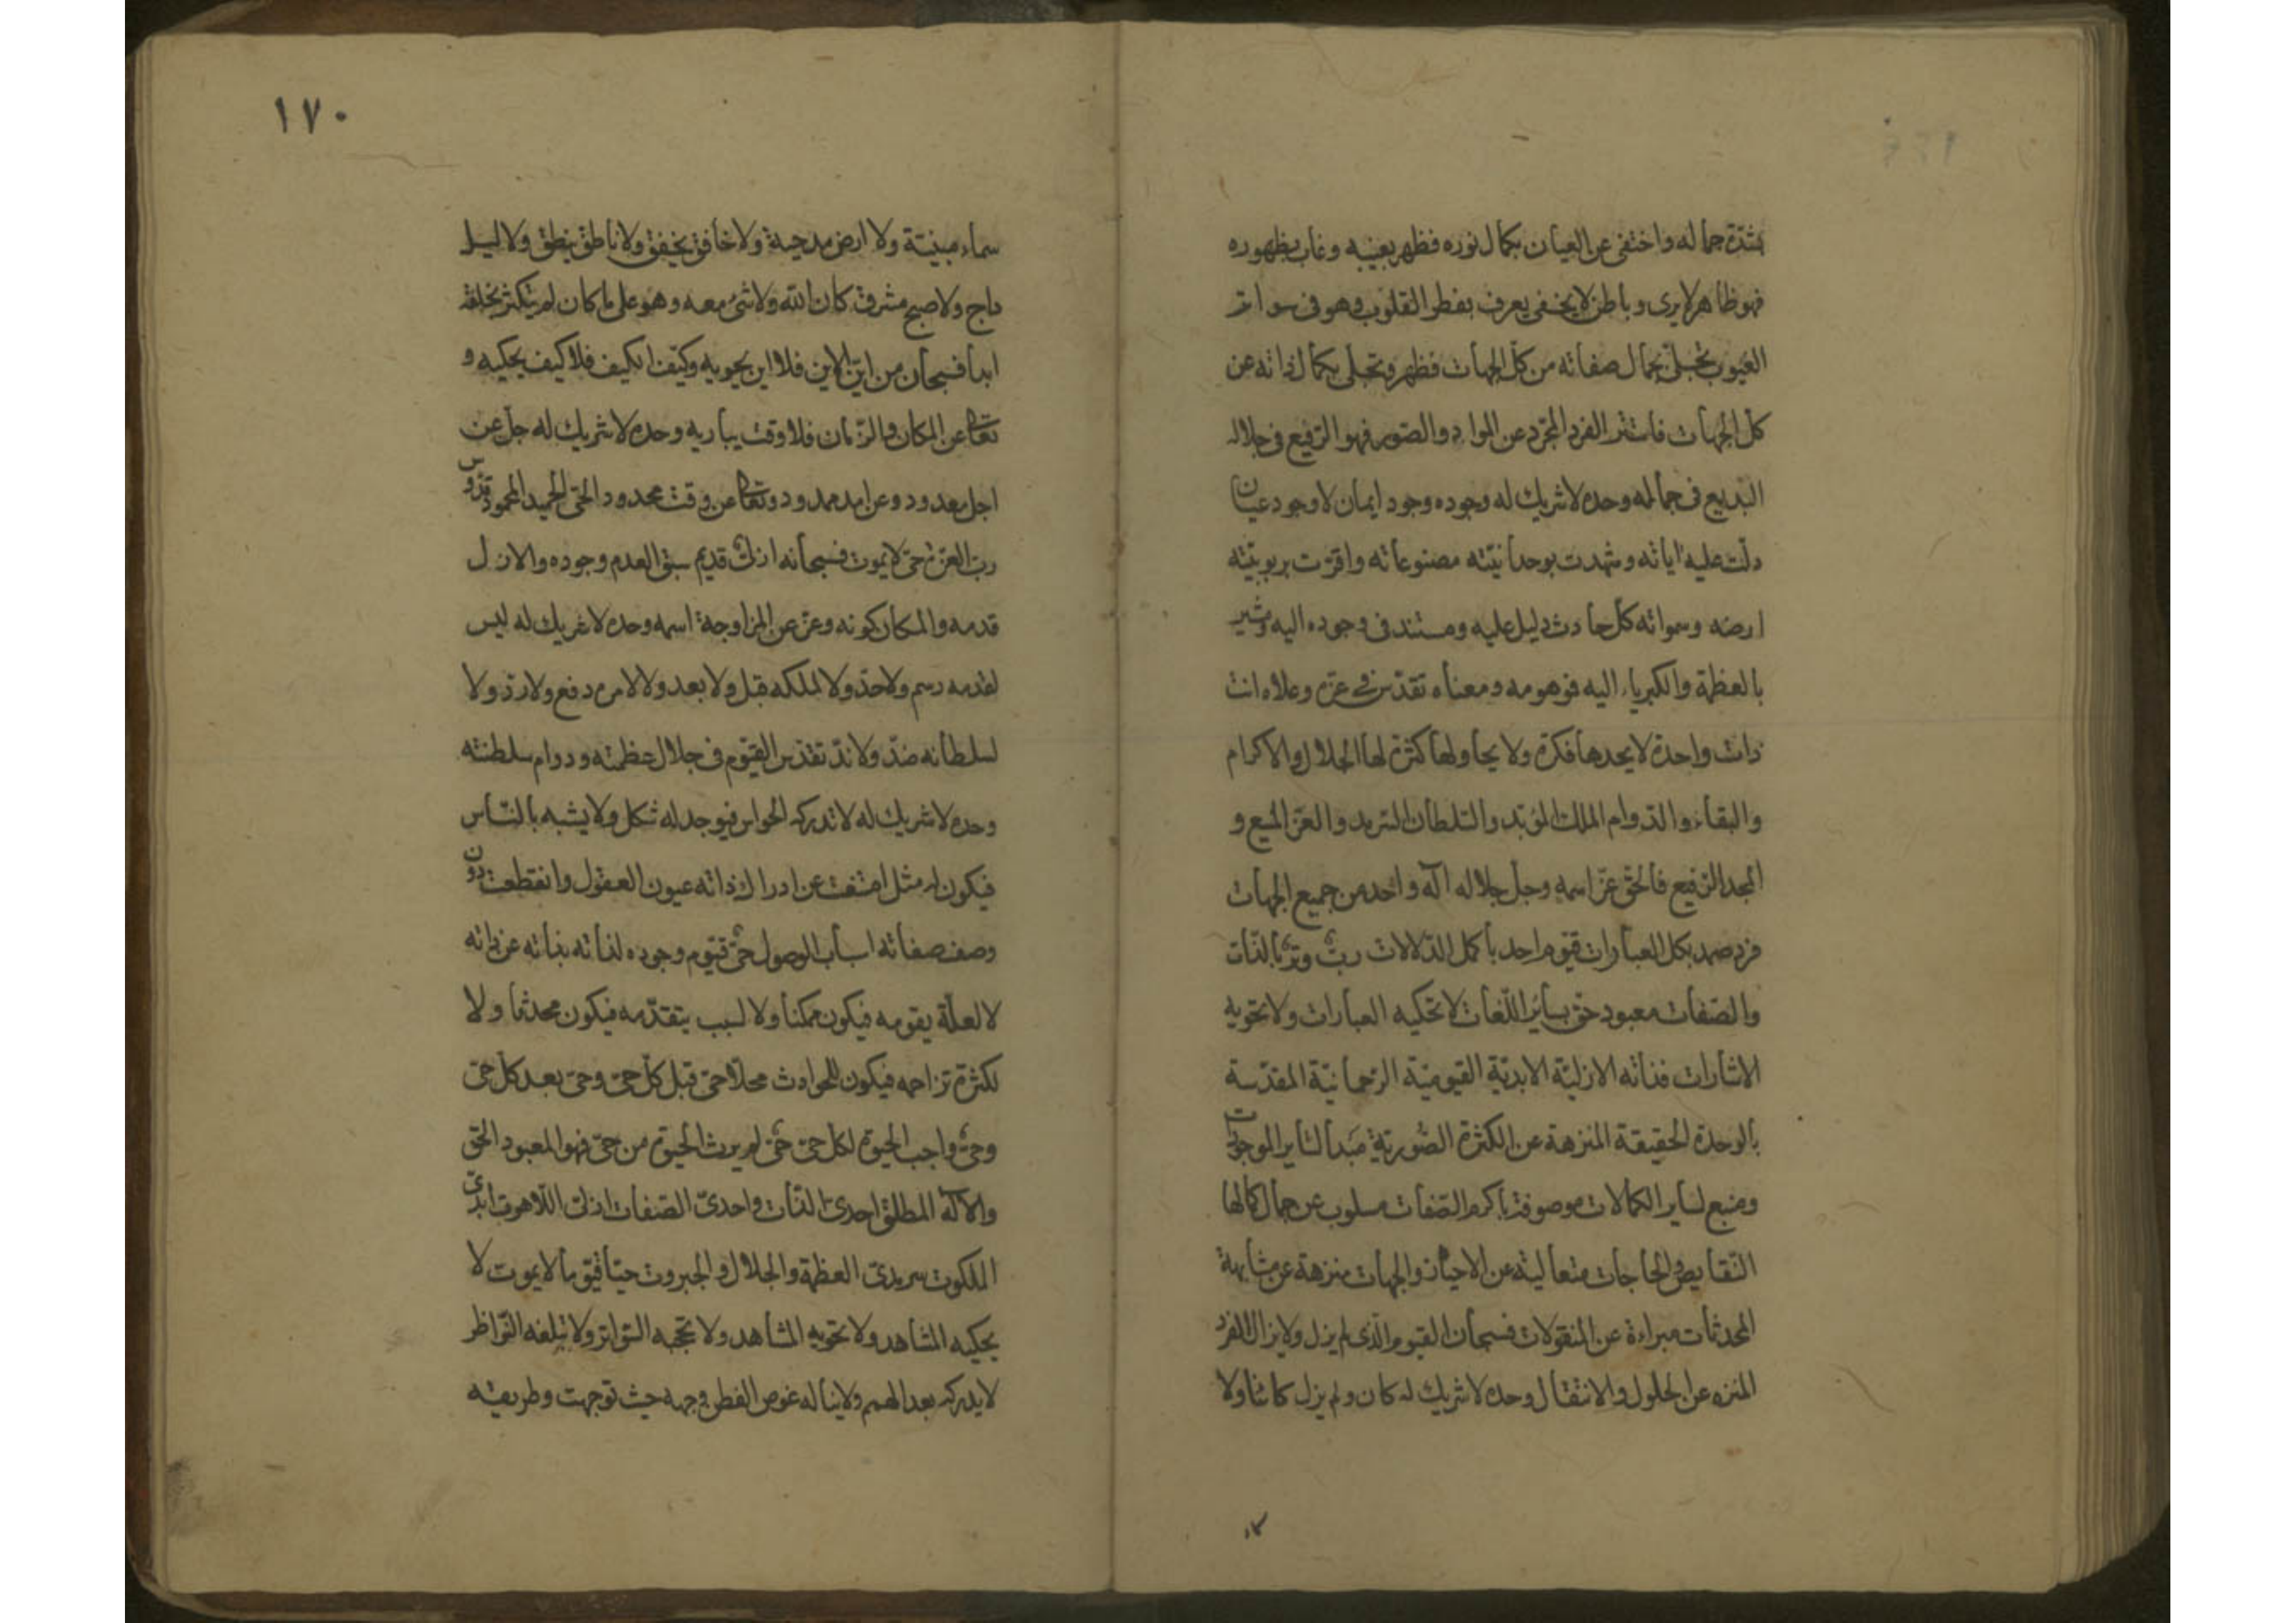 بشدّة جماله واختفى عن العيان بكمال نوره فظهر بغيبه وغاب بظهوره
فهو ظاهر لا يرى وباطن لا يخفى يعرف بفطر القلوب وهو في سواتر
الغيوب تجلى بجمال صفاته من كل الجهات فظهر وتجلى بكمال ذاته عن
كل الجهات فاستتر الفرد المجرّد عن المواد والصّور فهو الرّفيع في جلاله
البديع في جماله وحده لا شريك له وجوده وجود ايمان لا وجود عيان
دلّت عليه اياته وشهدت بوحدانيّته مصنوعاته واقرّت بربوبيّته
ارضه وسمواته كل حادث دليل عليه ومستند في وجوده اليه ومشير
بالعظمة والكبرياء اليه فوهومه ومعناه تقدّس في عزّه وعلاه انت
ذات واحدة لا يحدها فكرة ولا يحاولها كثرة لها الجلال والاكرام
والبقاء والدّوام الملك المؤبّد والسّلطان السّرمد والعزّ المنيع و
المجد الرّفيع فالحق عزّ اسمه وجل جلاله آله واحد من جميع الجهات
فرد صمد بكل العبارات قيّوم احد باكمل الدّلالات ربّ وترّ بالذّات
والصّفات معبود حق بسائر اللّغات لا تحكيه العبارات ولا تحويه
الاشارات فذاته الازليّة الابديّة القيوميّة الرّحمانيّة المقدّسة
بالوحدة الحقيقة المنزهة عن الكثرة الصّوريّة مبدأ لسایر الموجودات
ومنبع لسایر الكمالات موصوفة باكرم الصّفات مسلوب عن جمال كمالها
النّقايص والحاجات متعالية عن الاحياز والجهات منزهة عن مشابهة
المحدثات مبراءة عن المنقولات فسبحان القيوم الّذى لم يزل ولا يزال الفرد
المنزه عن الحلول والانتقال وحده لا شريك له كان ولم يزل كائنا ولا
١٧٠
سماء مبنيّة ولا ارض مدحيّة ولا خافق يخفق ولا ناطق ينطق ولا ليل
داج ولا صبح مشرق كان الله ولا شئ معه وهو على ما كان لم يتكثر بخلقه
ابدا فسبحان من ايّن الاين فلا اين يحويه وكيّف الكيف فلا كيف يحكيه و
تعالى عن المكان والزّمان فلا وقت يباريه وحده لا شريك له جل عن
اجل معدود وعن امد ممدود وتعالى عن وقت محدود الحىّ الحميد المحمود قدّوس
ربّ العزّة حىّ لا يموت فسبحانه ازلىّ قديم سبق العدم وجوده والازل
قدمه والمكان كونه وعزّ عن المزاوجة اسمه وحده لا شريك له ليس
لقدمه رسم ولا حدّ ولا لملكه قبل ولا بعد ولا لامره دفع ولا ردّ ولا
لسلطانه ضدّ ولا ندّ تقدّس القيّوم في جلال عظمته ودوام سلطنته
وحده لا شريك له لا تدركه الحواس فيوجد له شكل ولا يشبه بالنّاس
فيكون له مثل امتنعت عن ادراك ذاته عيون العقول وانقطعت دون
وصف صفاته اسباب الوصول حىّ قيّوم وجوده لذاته بذاته عن ذاته
لا لعلّة يقومه فيكون ممكنا ولا لسبب يتقدّمه فيكون محدثا ولا
لكثرة تزاحمه فيكون للحوادث محلّا حىّ قبل كل حىّ وحىّ بعد كل حىّ
وحىّ واجب الحيوة لكل حىّ حىّ لم يرث الحيوة من حىّ فهو المعبود الحق
والآله المطلق احدىّ الذّات واحدىّ الصّفات ازلىّ اللّاهوت ابدىّ
الملكوت سرمدىّ العظمة والجلال والجبروت حيّا قيّوما لا يموت لا
يحكيه المشاهد ولا تحويه المشاهد ولا تحجبه السّواتر ولا تبلغه النّواظر
لا يدركه بعد الهمم ولا يناله غوص الفطن وجهه حيث توجهت وطريقه